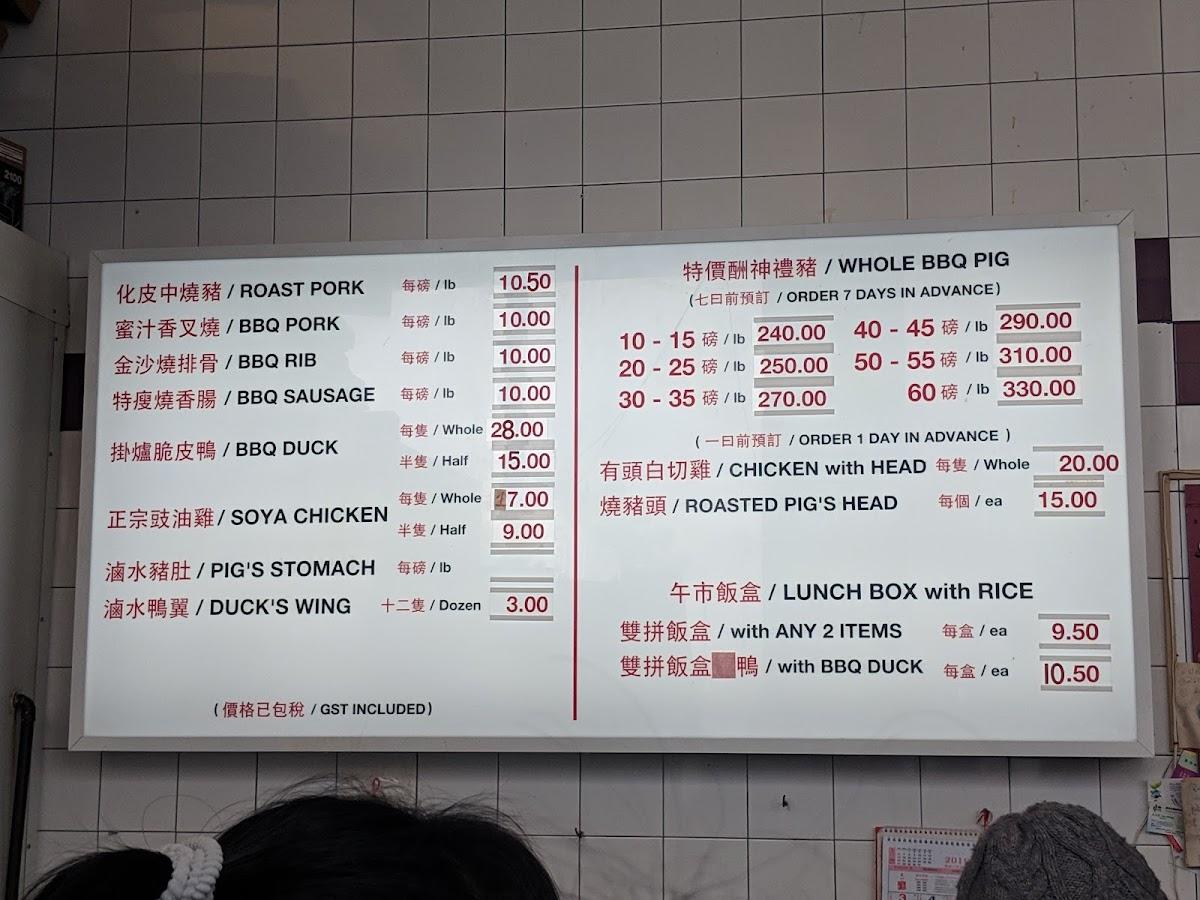 化皮中燒豬 / ROAST PORK 每磅 / lb 10.50
蜜汁香叉燒 / BBQ PORK 每磅 / lb 10.00
金沙燒排骨 / BBQ RIB 每磅 / lb 10.00
特瘦燒香腸 / BBQ SAUSAGE 每磅 / lb 10.00
掛爐脆皮鴨 / BBQ DUCK 每隻 / Whole 28.00
半隻 / Half 15.00
正宗豉油雞 / SOYA CHICKEN 每隻 / Whole 17.00
半隻 / Half 9.00
滷水豬肚 / PIG'S STOMACH 每磅 / lb
滷水鴨翼 / DUCK'S WING 十二隻 / Dozen 3.00
( 價格已包稅 / GST INCLUDED )
特價酬神禮豬 / WHOLE BBQ PIG
( 七日前預訂 / ORDER 7 DAYS IN ADVANCE )
10 - 15 磅 / lb 240.00 40 - 45 磅 / lb 290.00
20 - 25 磅 / lb 250.00 50 - 55 磅 / lb 310.00
30 - 35 磅 / lb 270.00 60 磅 / lb 330.00
( 一日前預訂 / ORDER 1 DAY IN ADVANCE )
有頭白切雞 / CHICKEN with HEAD 每隻 / Whole 20.00
燒豬頭 / ROASTED PIG'S HEAD 每個 / ea 15.00
午市飯盒 / LUNCH BOX with RICE
雙拼飯盒 / with ANY 2 ITEMS 每盒 / ea 9.50
雙拼飯盒 鴨 / with BBQ DUCK 每盒 / ea 10.50
2100